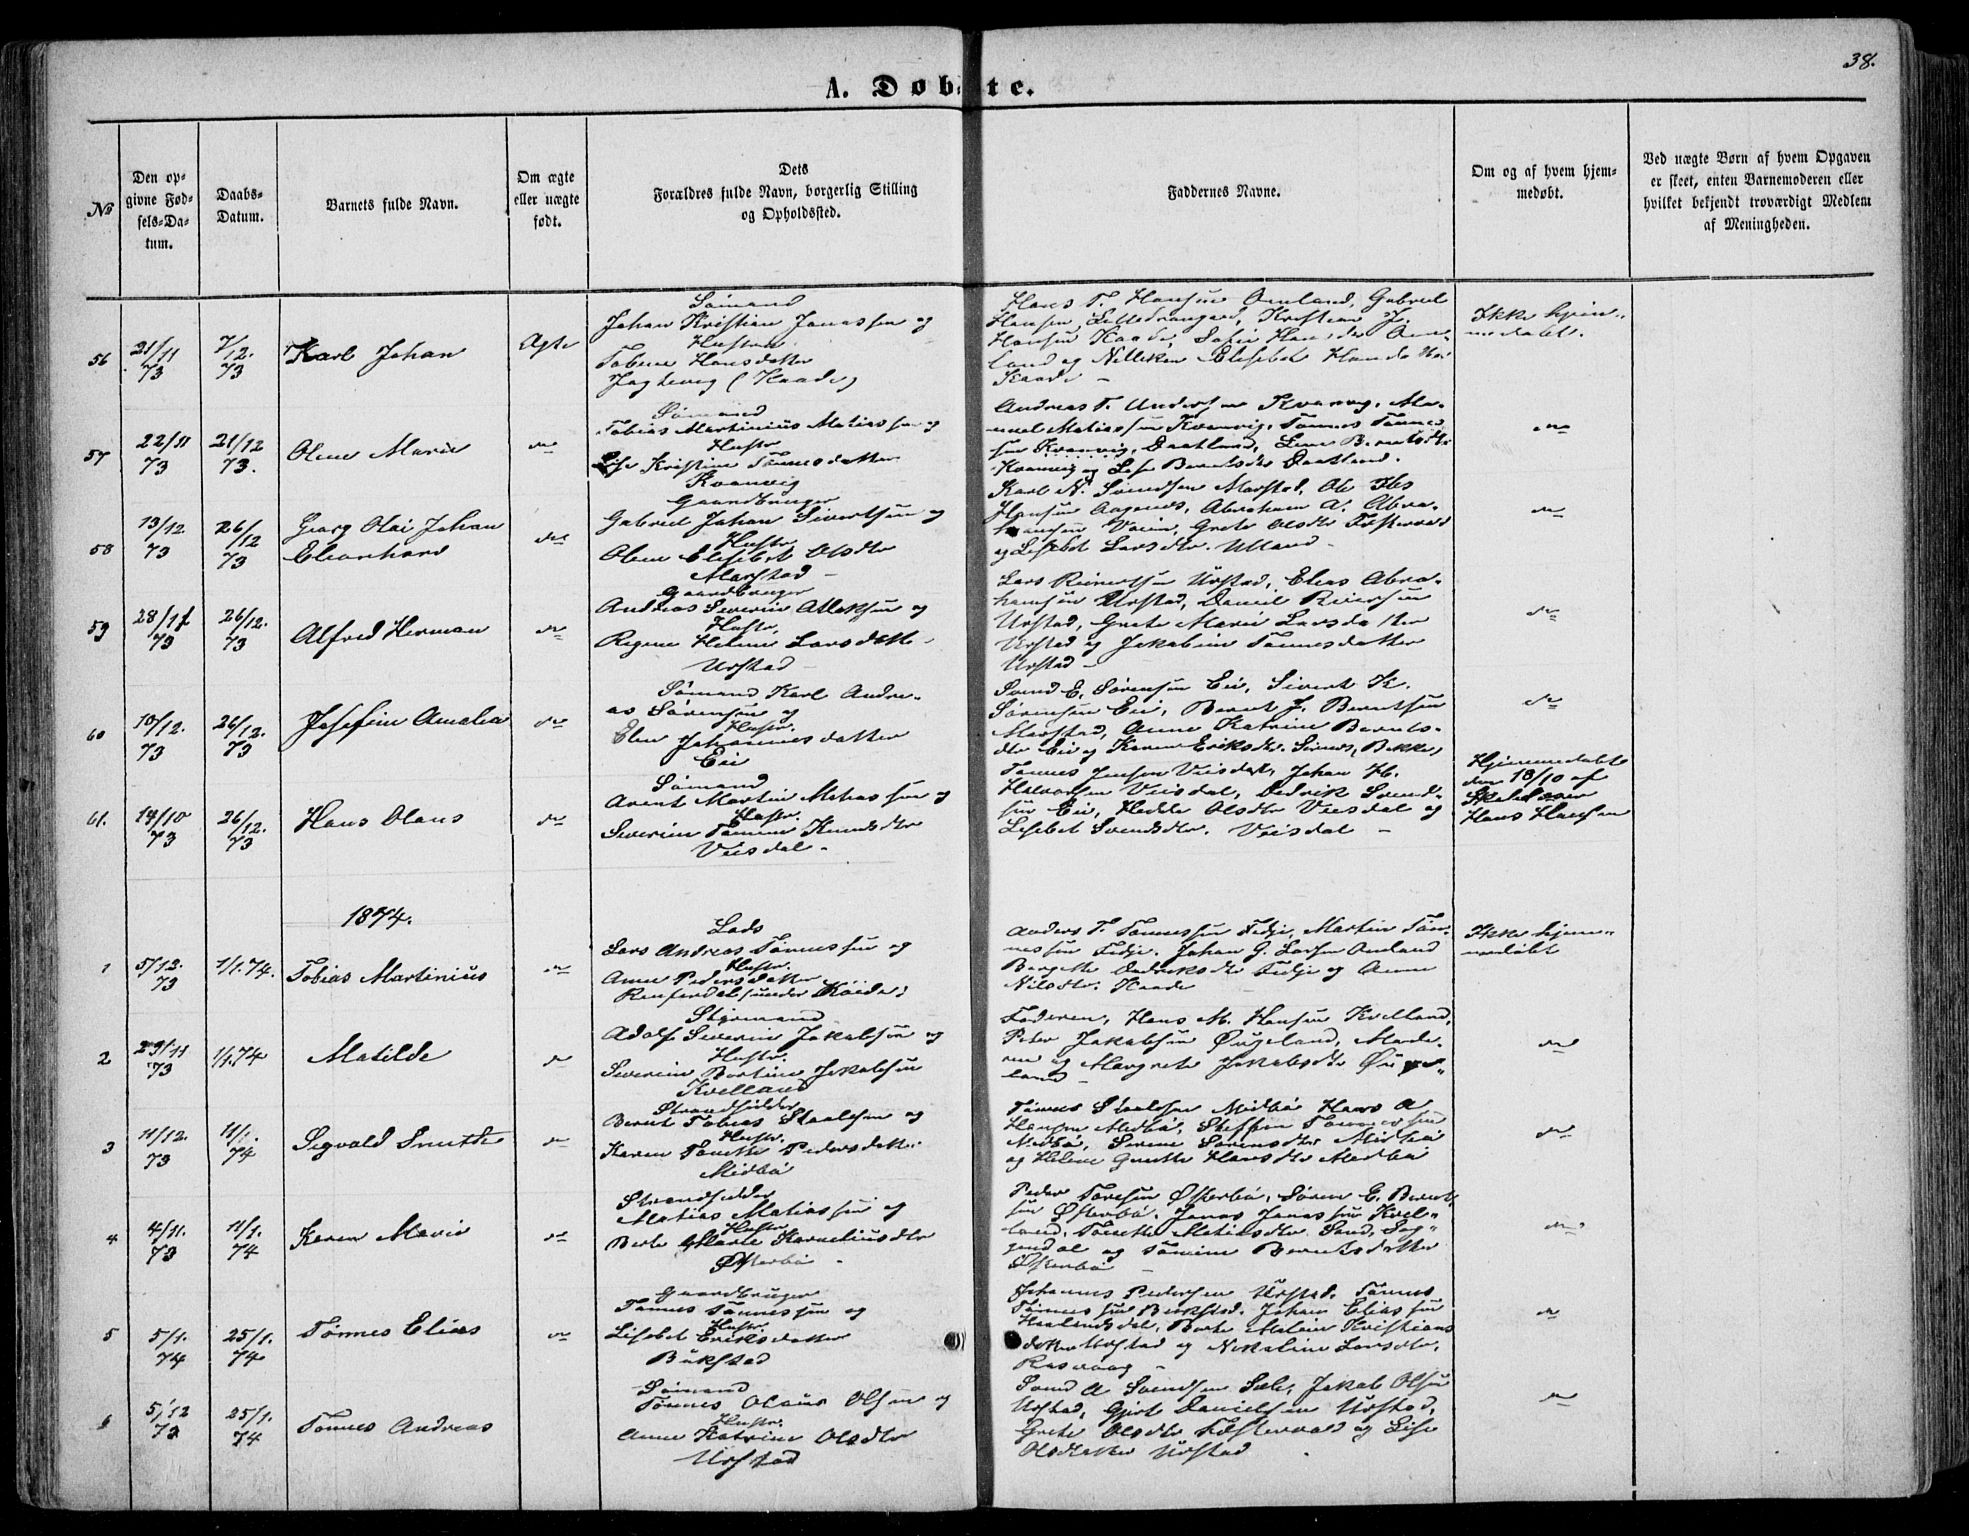 38.
A. Døbte.
№
Den op-
givne Fød-
sels-Da-
tum.
Daabs-
Datum.
Barnets fulde Navn.
Om ægte
eller uægte
født.
Dets
Forældres fulde Navn, borgerlig Stilling
og Opholdssted.
Faddernes Navne.
Om og af hvem hjem-
medøbt.
Ved uægte Børn af hvem Opgaven
er skeet, enten Barnemoderen eller
hvilket bekjendt troværdigt Medlem
af Menigheden.
56
21/11
73
7/12.
73
Karl Johan
Ægte
Sømand
Johan Kristian Jonassen og
Hustru
Tobine Hansdatter
Hans T. Hansen Omland, Gabriel
Hansen Kristian J.
Hansen
land og Elisebet
Ikke hjem-
medøbt.
57
22/11
73
21/12
73.
Oline Marie
do
Sømand
Tobias Martinius Matiassen og
Hustr
Lise Kristine Tønnesdatter
Kvanvig
Andreas T. Andersen Kvanvig, Ma-
Matiassen Kvanvig, Tønnes Tønnes
sen Kvanvig, Daatland, Lene Berntsdtr
Kvanvig og Lise Berntsdtr Daatland.
do
58
13/12
73
26/
12
73
Georg Olai Johan
Eleonhard
do
Gaardbruger
Gabriel Johan Sivertsen og
Hustr
Olene Elisebet Olsdtr
Marstad
Karl N. Svendsen Marstad, Ole
Hansen Abraham A. Abra-
hamsen Grete Olsdtr
og Lisebet Larsdtr. Ulland
do
59
73
26/12.
73
Alfred Herman
do
Gaardbruger
Andreas Severin Atleksen og
Hustr,
Regine Helene Larsdatter
Urstad
Lars Reinertsen Urstad, Elias Abra-
hamsen Urstad, Daniel Reiersen
Urstad, Grete Marie Larsdatter
Urstad og Jakobine Tønnesdatter
Urstad
do
60
10/12.
73
26/12.
73
Josefine Amalia
do
Sømand Karl Andre-
as Sørensen og
Hustr.
Elen Johannesdatter
Eie
Svend E. Sørensen Eie, Sivert K.
Sørensen Eie, Bernt J. Berntsen
Marstad, Anne Katrine Bernts-
dtr Eie og Karen Eriksdtr. Bekke
do
61.
19/10
73
26/
12.
73
Hans Olaus
do
Sømand
Arent Martin og
Hustr.
Severine Tomine Knudsdtr
Veisdal
Tønnes Jensen Veisdal, Johan H.
Halvorsen Veisdal, Dedrik Svend-
sen Eie, Hedle Olsdtr Veisdal og
Lisebet Svendsdtr. Veisdal
Hjemmedøbt
den 18/10 af
Skolelærer
Hans Hansen
1874.
1
5/12.
73
1/1.74.
Tobias Martinius
do
Lods
Lars Andreas Tønnessen og
Hustr.
Anne Pedersdatter
under
Anders T. Tønnessen Fedje, Martin Tøn-
nessen Fedje, Johan G. Larsen Omland
Bergitte Dedriksdtr Fedje og Anne
Nilsdtr.
Ikke hjem-
medøbt
2
29/11
73
1/1.74
Matilde
do
Styrmand
Adolf Severin Jakobsen og
Hustr.
Severine Bertine Jakobsen
Kvelland
Faderen, Hans M. Hansen Kvelland,
Peter Jakobsen Øigeland, Mode-
ren og Margrete Jakobsdtr Øige-
land
do
3
11/12.
73
11/1.
74
Sigvald Smitter
do
Strandsidder
Bernt Tobias Staalesen og
Hustr.
Karen Tonette Pedersdatter
Midbø
Tønnes Staalesen Midbø Hans A
Hansen Midbø, Steffen Tønnessen
Midbø, Serine Sørensdtr Midbø
og Helene Gurette Hansdtr Midbø
do
4
4/11.
73
11/1.
74
Karen Marie
do
Strandsidder
Matias Matiassen og
Hustr
Berte Marie Korneliusdtr
Østerbø
Peder Tøresen Østerbø, Søren E. Bernt
sen Østerbø, Jonas Jonassen Kvel-
land, Tonette Matiasdtr Sand, Sog-
gendal og Tomine Berntsdatter
Østerbø
do
5
5/1.
74
25/1.
74
Tønnes Elias
do
Gaardbruger
Tønnes Tønnessen og
Hustr.
Lisebet Eriksdatter
Bukstad
Johannes Pedersen Urstad, Tønnes
Tønnessen Bukstad, Johan Eliassen
Berte Malene Kristians
datter Urstad og Nikoline Larsdtr,
Rasvaag
do
6
5/12
73
25/1.
74
Tønnes Andreas
Sømand
Tønnes Olaus Olsen og
Hustr.
Anne Katrine Olsdtr
Urstad
Svend A Svendsen Sele, Jakob Olsen
Urstad, Gjert Danielsen Urstad,
Grete Olsdtr og Lise
Olsdatter Urstad
do